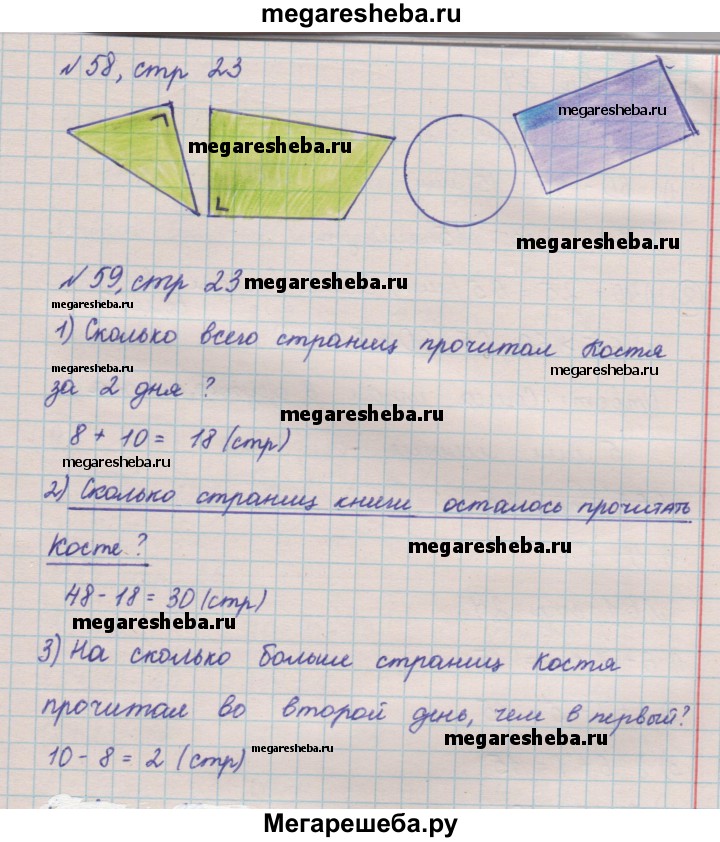 megaresheba.ru
№58, стр 23
megaresheba.ru
megaresheba.ru
megaresheba.ru
№59, стр 23 megaresheba.ru
megaresheba.ru
1) Сколько всего страниц прочитал Костя
megaresheba.ru
megaresheba.ru
за 2 дня?
megaresheba.ru
8 + 10 = 18 (стр)
megaresheba.ru
2) Сколько страниц книги осталось прочитать
Косте?
megaresheba.ru
48 - 18 = 30 (стр)
megaresheba.ru
3) На сколько больше страниц Костя
прочитал во второй день, чем в первый?
megaresheba.ru
megaresheba.ru
10 - 8 = 2 (стр)
Мегарешеба.ру